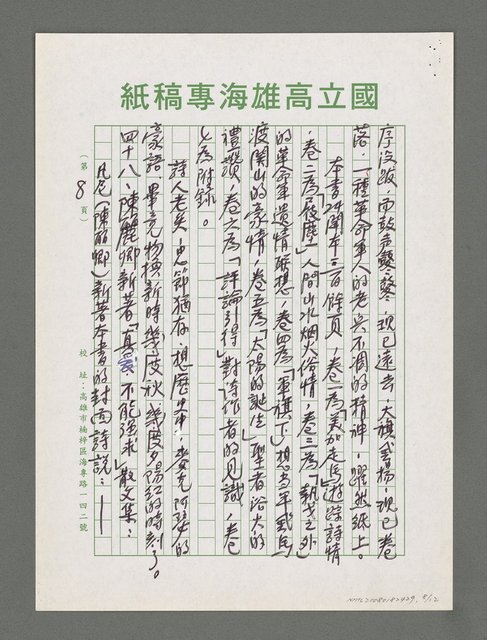 國立高雄海專稿紙
序沒跋，雨鼓聲鼕鼕，現已遠去，大旗武揚，現已卷
落，一種革命軍人的老兵不凋的精神，躍然紙上。
本書24開本三百餘頁，卷一為「美加走馬」遊踪詩情
，卷二為「屐塵」人間山水烟火俗情，卷三為「執戈之外」
的革命軍遺情聯想，卷四為「軍旗下」想當年戎馬
渡關山的豪情，卷五為「太陽的誕生」聖者浴火的
禮讚，卷六為「評論引得」對詩作者的見識，卷
七為附錄。
詩人老矣，忠節猶存，想歷史中，麥克阿瑟的
豪語，畢竟物換新時幾度秋，幾度夕陽紅的時刻了。
四十八、陳麗卿新著「真愛不能強求」散文集：
凡尼（陳麗卿）新著本書的封面詩說：—
（第 8 頁）
校址：高雄市楠梓區海專路一四二號
NMTL20080182429, 8/12